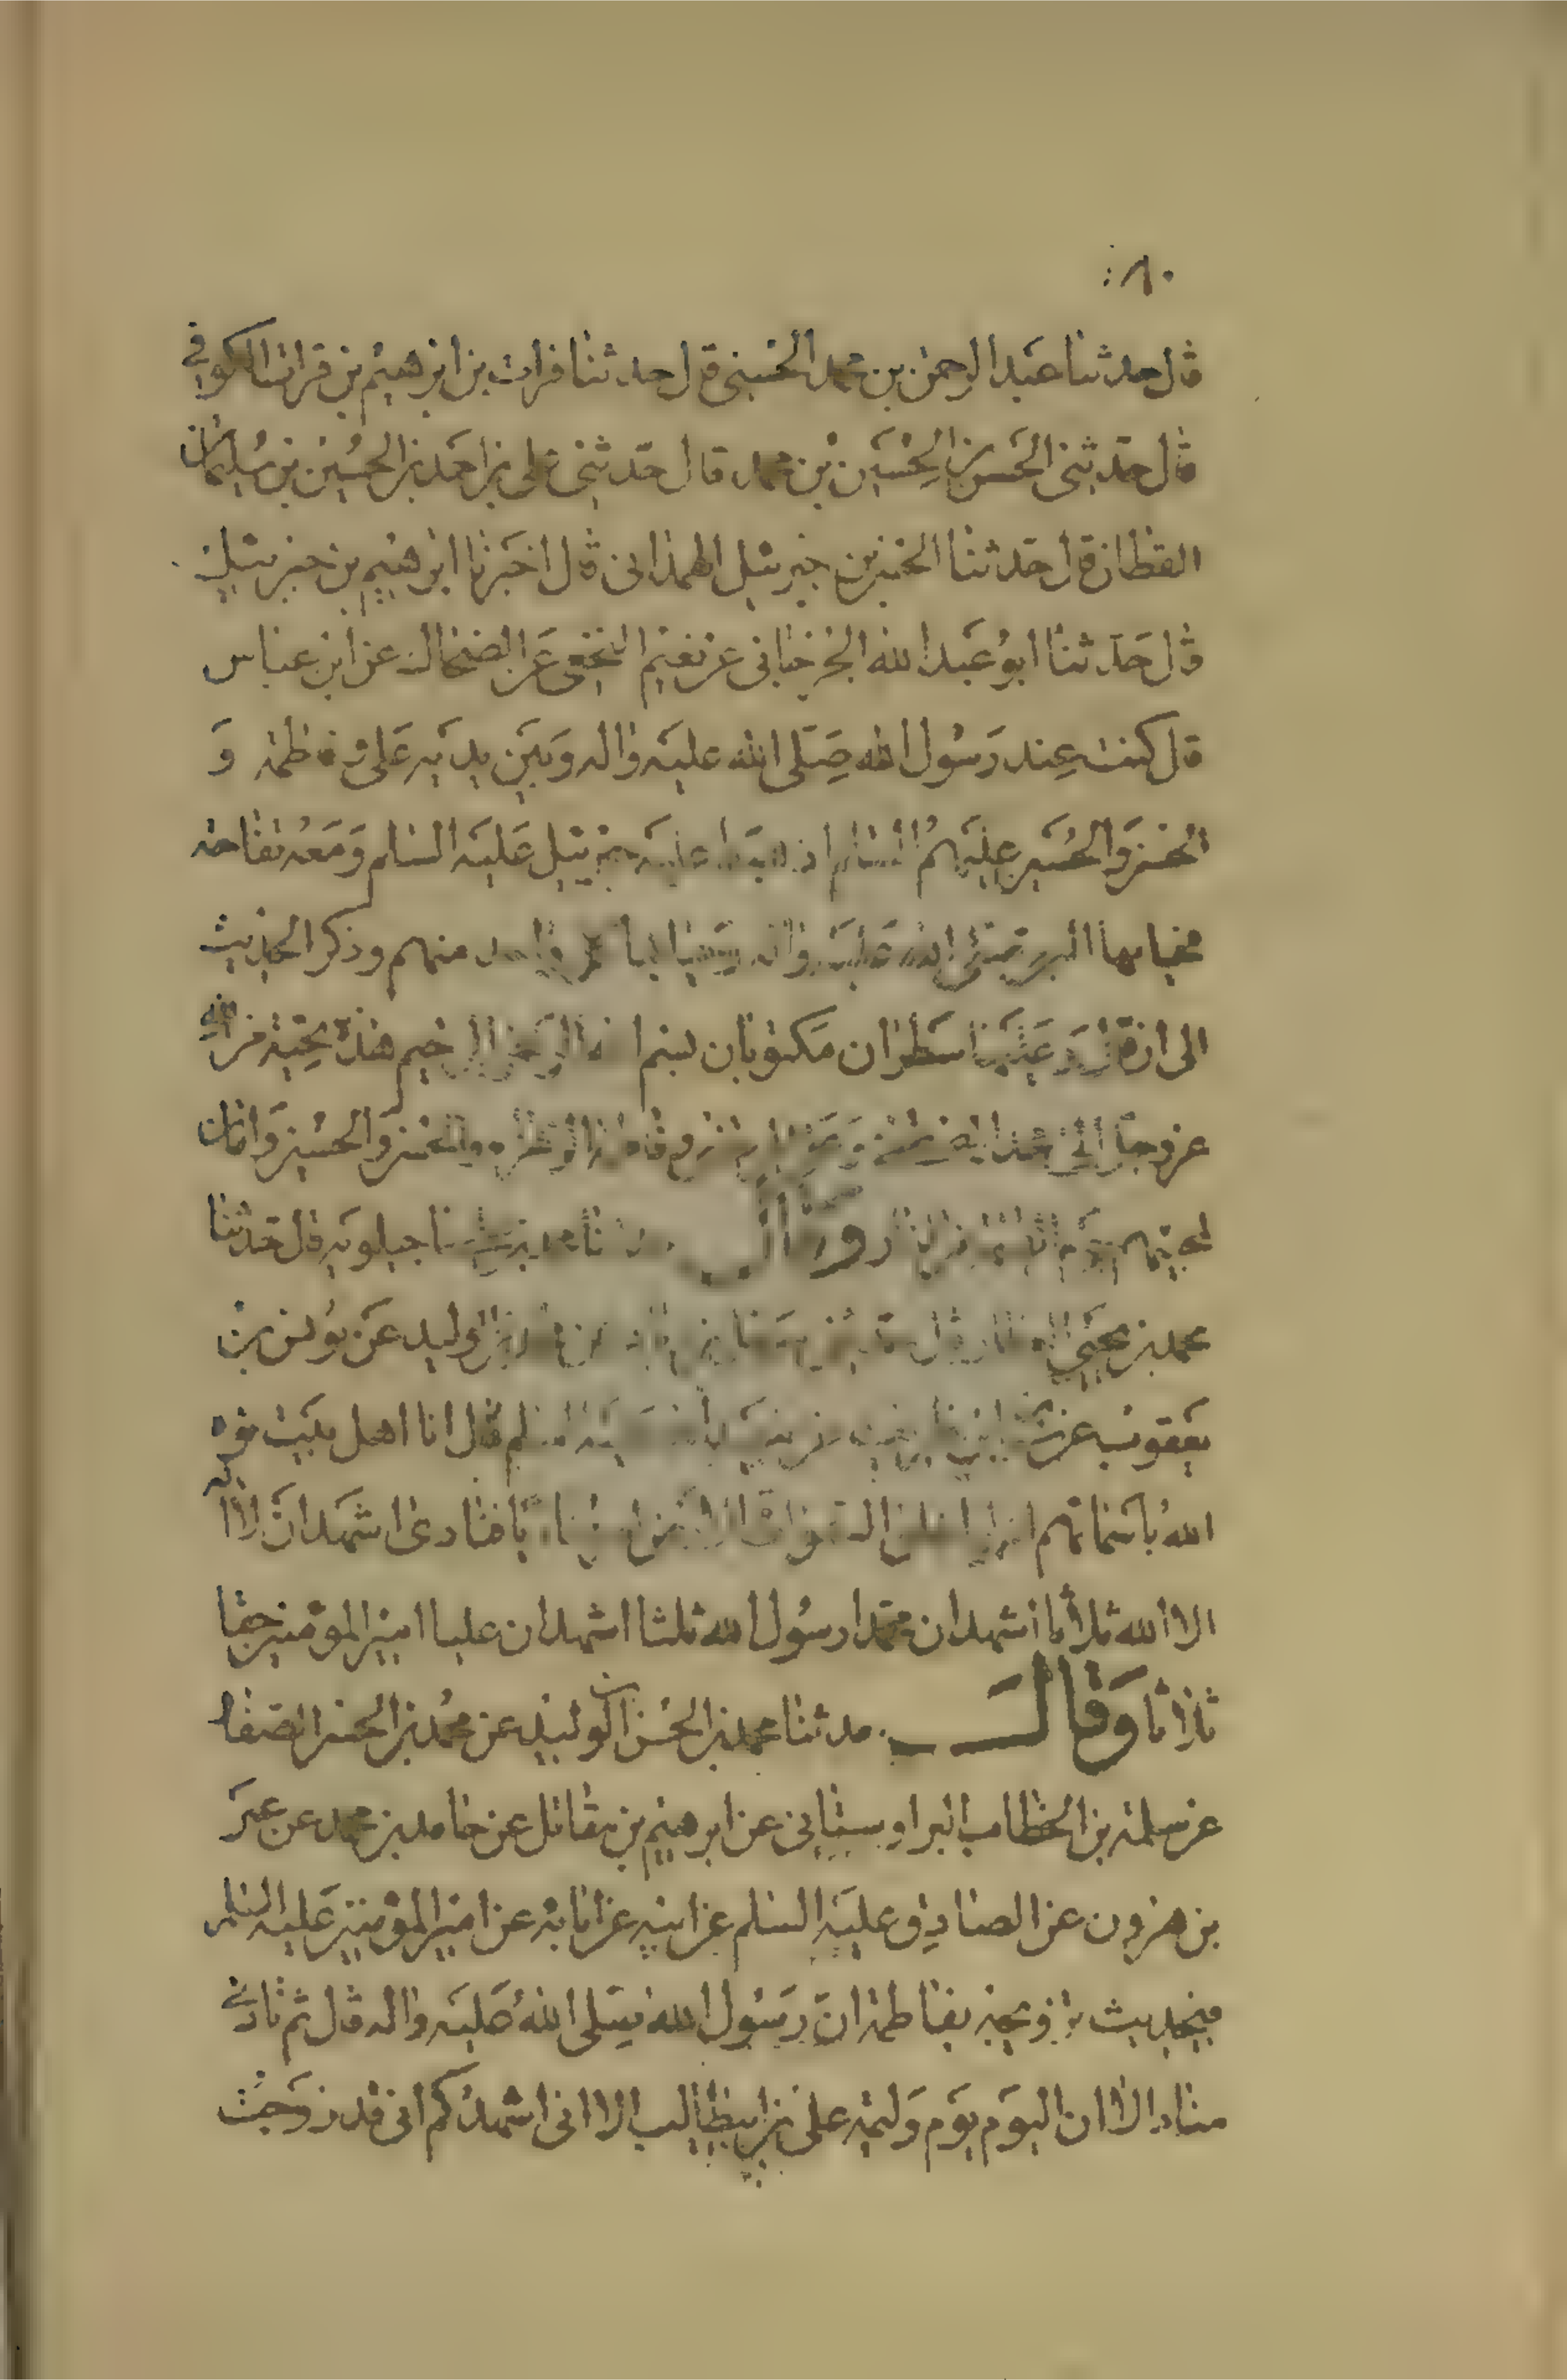 ٨٠
قال حدثنا عبد الرحمن بن محمد الحسني قال حدثنا فرات بن ابرهيم بن فرات الكوفي
قال حدثني الحسن بن الحسين بن محمد قال حدثني على بن احمد بن الحسين بن سليمان
القطان قال حدثنا الحسن بن جبرئيل الهمداني قال اخبرنا ابرهيم بن جبرئيل
قال حدثنا ابو عبد الله الجرجاني عن نعيم النخعي عن الضحاك عن ابن عباس
قال كنت عند رسول الله صلى الله عليه واله وبين يديه على و فاطمة و
الحسن والحسين عليهم السلام اذ هبط عليه جبرئيل عليه السلام ومعه تفاحة
فحيا بها النبي صلى الله عليه واله وحيا بها كل واحد منهم وذكر الحديث
الى ان قال وعليها سطران مكتوبان بسم الله الرحمن الرحيم هذه تحية من الله
عز وجل الى محمد المصطفى وعلى المرتضى وفاطمة الزهراء والحسن والحسين وامان
لمحبيهم يوم القيمة من النار وقال حدثنا جيلويه قال حدثنا
محمد بن يحيى العطار قال الوليد عن يونس بن
يعقوب عن عليه السلم قال انا اهل بيت نوه
الله باسمائهم السموات والارض مناديا فنادى اشهد ان لا اله
الا الله ثلاثا اشهد ان محمدا رسول الله ثلثا اشهد ان عليا امير المومنين حقا
ثلاثا وقال حدثنا محمد بن الحسن بن الوليد عن محمد بن الحسن الصفار
عن سلمة بن الخطاب البراوستاني عن ابرهيم بن مقاتل عن حامد بن محمد عن عمر
بن هرون عن الصادق عليه السلم عن ابيه عن ابائه عن امير المؤمنين عليه السلم
في حديث تزويجه بفاطمة ان رسول الله صلى الله عليه واله قال ثم نادى
مناد الا ان اليوم يوم وليمة على بن ابيطالب الا اني اشهدكم اني قد زوجت